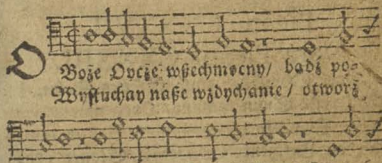 O Boże Oycze wßechmocny/ bądź po-
Wysłuchay naße wzdychanie/ otworz